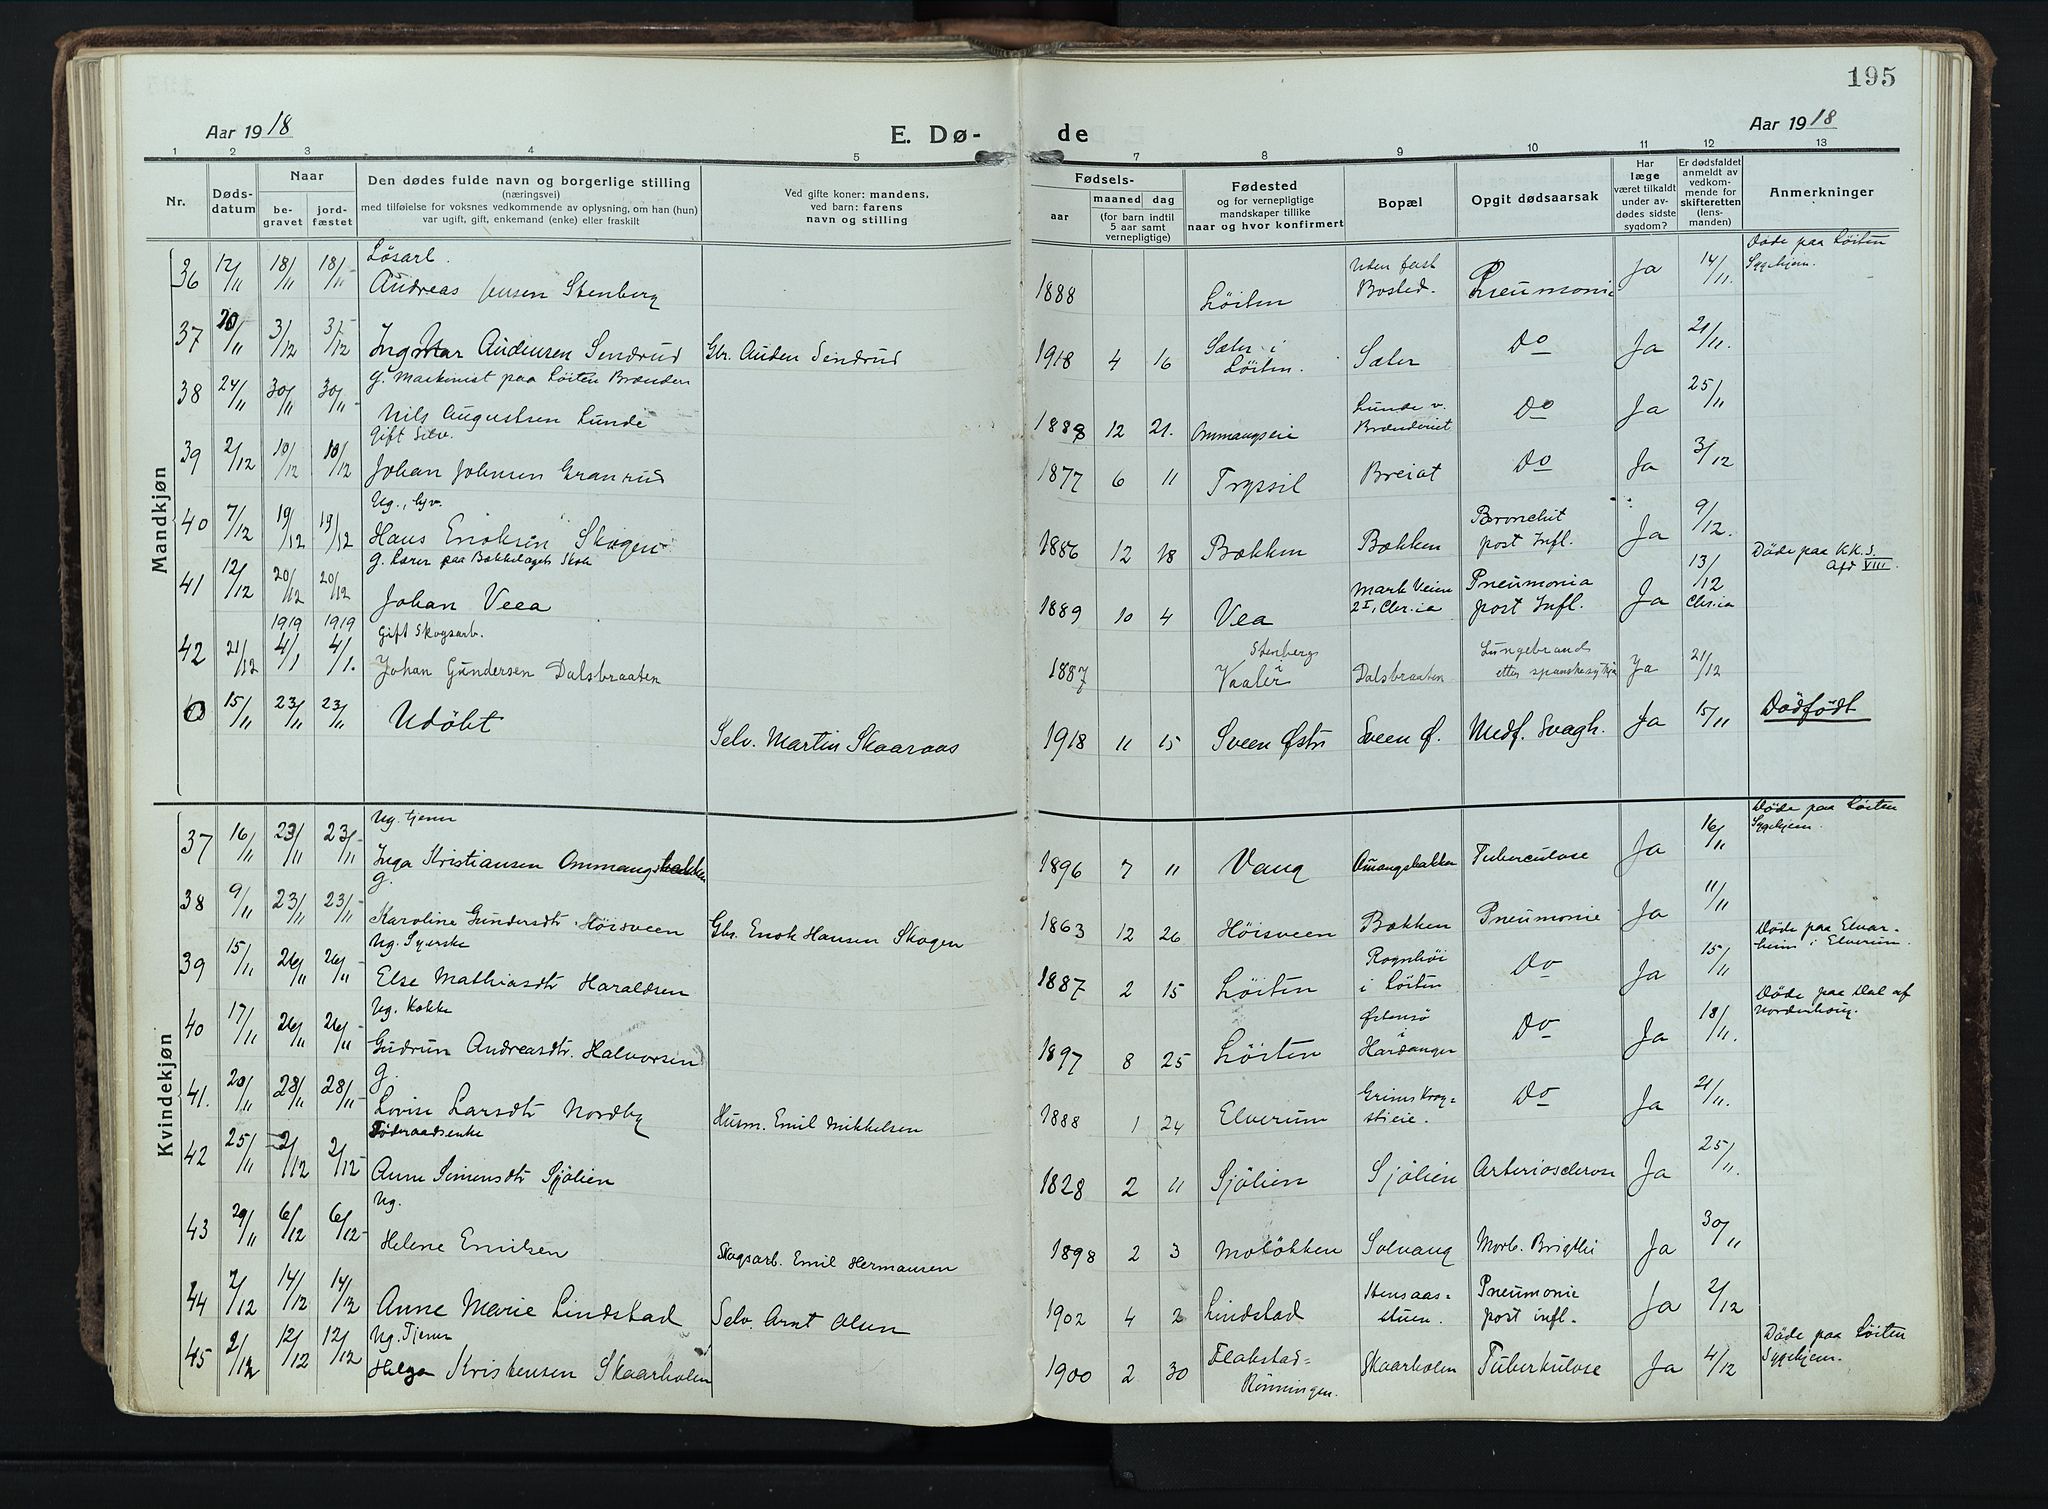 195
Aar 1918
E. Dø-
de
Aar 1918
1 2 3 4 5 7 8 9 10 11 12 13
Nr.
Døds-
datum
Naar
be-
gravet
jord-
fæstet
Den dødes fulde navn og borgerlige stilling
(næringsvei)
med tilføielse for voksnes vedkommende av oplysning, om han (hun)
var ugift, gift, enkemand (enke) eller fraskilt
Ved gifte koner: mandens,
ved barn: farens
navn og stilling
Fødsels-
aar
maaned dag
(for barn indtil
5 aar samt
vernepligtige)
Fødested
og for vernepligtige
mandskaper tillike
naar og hvor konfirmert
Bopæl
Opgit dødsaarsak
Har
læge
været tilkaldt
under av-
dødes sidste
sygdom?
Er dødsfaldet
anmeldt av
vedkom-
mende for
skifteretten
(lens-
manden)
Anmerkninger
Mandkjøn
Løsarb.
36 12/11 18/11 18/11 Andreas Jensen Stenberg 1888 Løiten Uden fast Bosted. Pneumonie Ja 14/11. Døde paa Løiten Sygehjem.
37 20/11 3/12 3/12 Ingmar Audensen Sendrud Gbr. Auden Sendrud 1918 4 16 Sæler i Løiten. Sæler Do Ja 21/11.
G. Maskinist paa Løiten Brænderi
38 24/11 30/11 30/11 Nils Augustsen Lunde 1888 12 21. Ommangseie Lunde v. Brænderiet Do Ja 25/11
Gift Selv.
39 2/12 10/12 10/12 Johan Johnsen Granrud 1877 6 11 Trysil Breiat Do Ja 3/12
Ug., Gjv.
40 7/12 19/12 19/12 Hans Enoksen Skogen 1886 12 18 Bækken Bækken Bronchit post Infl. Ja 9/12.
G. Lærer paa Bækkelagets Skole
41 12/12 20/12 20/12 Johan Veea 1889 10 4 Vea Mark Veien 2 I, Chr.ia Pneumonia post Infl. Ja 13/12 Chr.ia Døde paa K.K.S. Afd VIII.
1919 1919 Gift Skogsarb.
42 21/12 4/1 4/1. Johan Gundersen Dalsbraaten 1887 Stenberg i Vaaler Dalsbraaten Lungebrand efter spanskesyken Ja 21/12
0 15/11 23/11 23/11 Udöbt Selv. Martin Skaaraas 1918 11 15 Sveen Østre Sveen Ø. Medf. Svagh. Ja 15/11 Dödfödt
Kvindekjøn
Ug. tjener
37 16/11 23/11 23/11 Inga Kristiansen Ommangsbakken 1896 7 11 Vang Omangsbakken Tuberculose Ja 16/11 Døde paa Løiten Sygehjem.
G.
38 9/11 23/11 23/11 Karoline Gundersdtr. Höisveen Gbr. Enok Hansen Skogen 1863 12 26 Höisveen Bækken Pneumonie Ja 11/11
Ug. Syerske
39 15/11 26/11 26/11 Else Mathiasdtr Haraldsen 1887 2 15 Löiten Rognhöi i Löiten Do Ja 15/11 Døde paa Elvarheim i Elverum.
Ug. Kokke
40 17/11 26/11 26/11 Gudrun Andreasdtr. Halvorsen 1897 8 25 Löiten Østensö i Hardanger Do Ja 18/11. Døde paa Dal af Norderhoug.
G.
41. 20/11 28/11 28/11 Lovise Larsdtr Nordby Husm. Emil Mikkelsen 1888 1 24 Elverum Grims Krogstieie. Do Ja 21/11.
Föderaadsenke
42 25/11 2/12 2/12 Anne Simensdtr Sjölien 1828 2 11 Sjölien Sjölien Arteriosclerose Ja 25/11.
Ug.
43 29/11 6/12 6/12 Helene Emilsen Skogsarb. Emil Hermansen 1898 2 3 Molökken Solvang Morb. Brigthi Ja 30/11
44 2/12 14/12 14/12 Anne Marie Lindstad Selv. Arnt Olsen 1902 4 2 Lindstad Stensaasstuen. Pneumonie post infl. Ja 2/12
Ug. Tjener
45 2/12 12/12 12/12 Helga Kristensen Skaarholen 1900 2 30 Flakstad-Rönningen. Skaarholen Tuberkulose Ja 4/12 Döde paa Löiten Sygehjem.